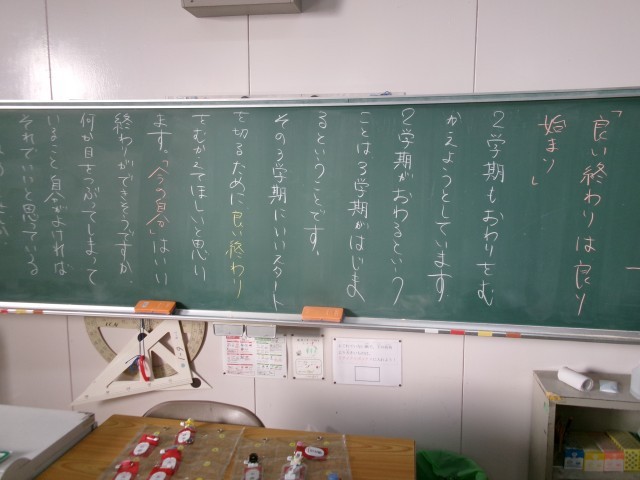 「良い終わりは良い
始まり」
２学期もおわりをむ
かえようとしています
２学期がおわるという
ことは３学期がはじま
るということです、
その３学期にいいスタート
を切るために良い終わり
をむかえてほしいと思い
ます。「今の自分」はいい
終わりができそうですか、
何か目をつぶってしまって
いること自分がよければ
それでいいと思っている